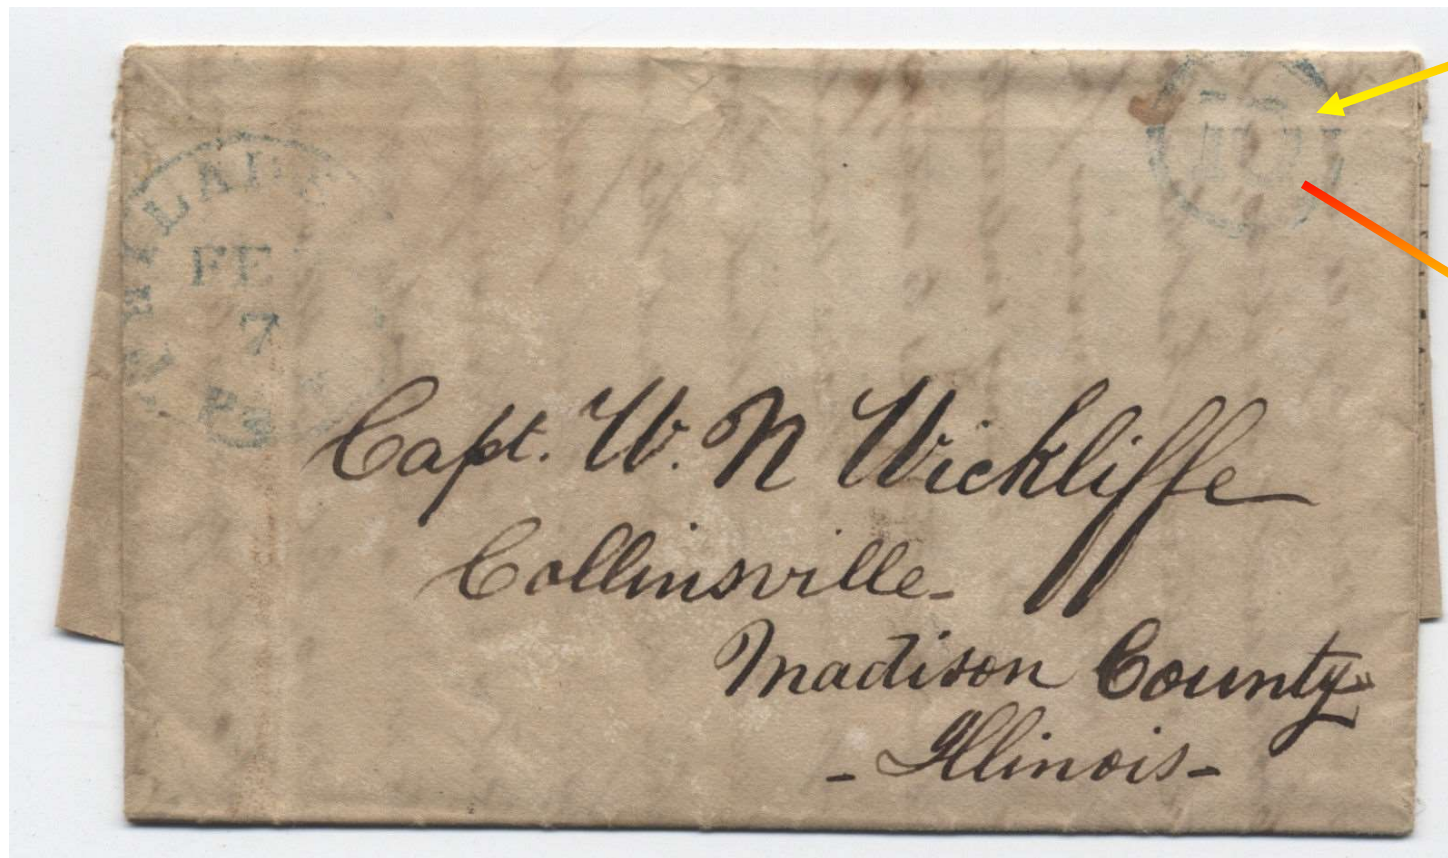 FE
7
Capt. W. N Wickliffe
Collinsville-
Madison County
- Illinois -